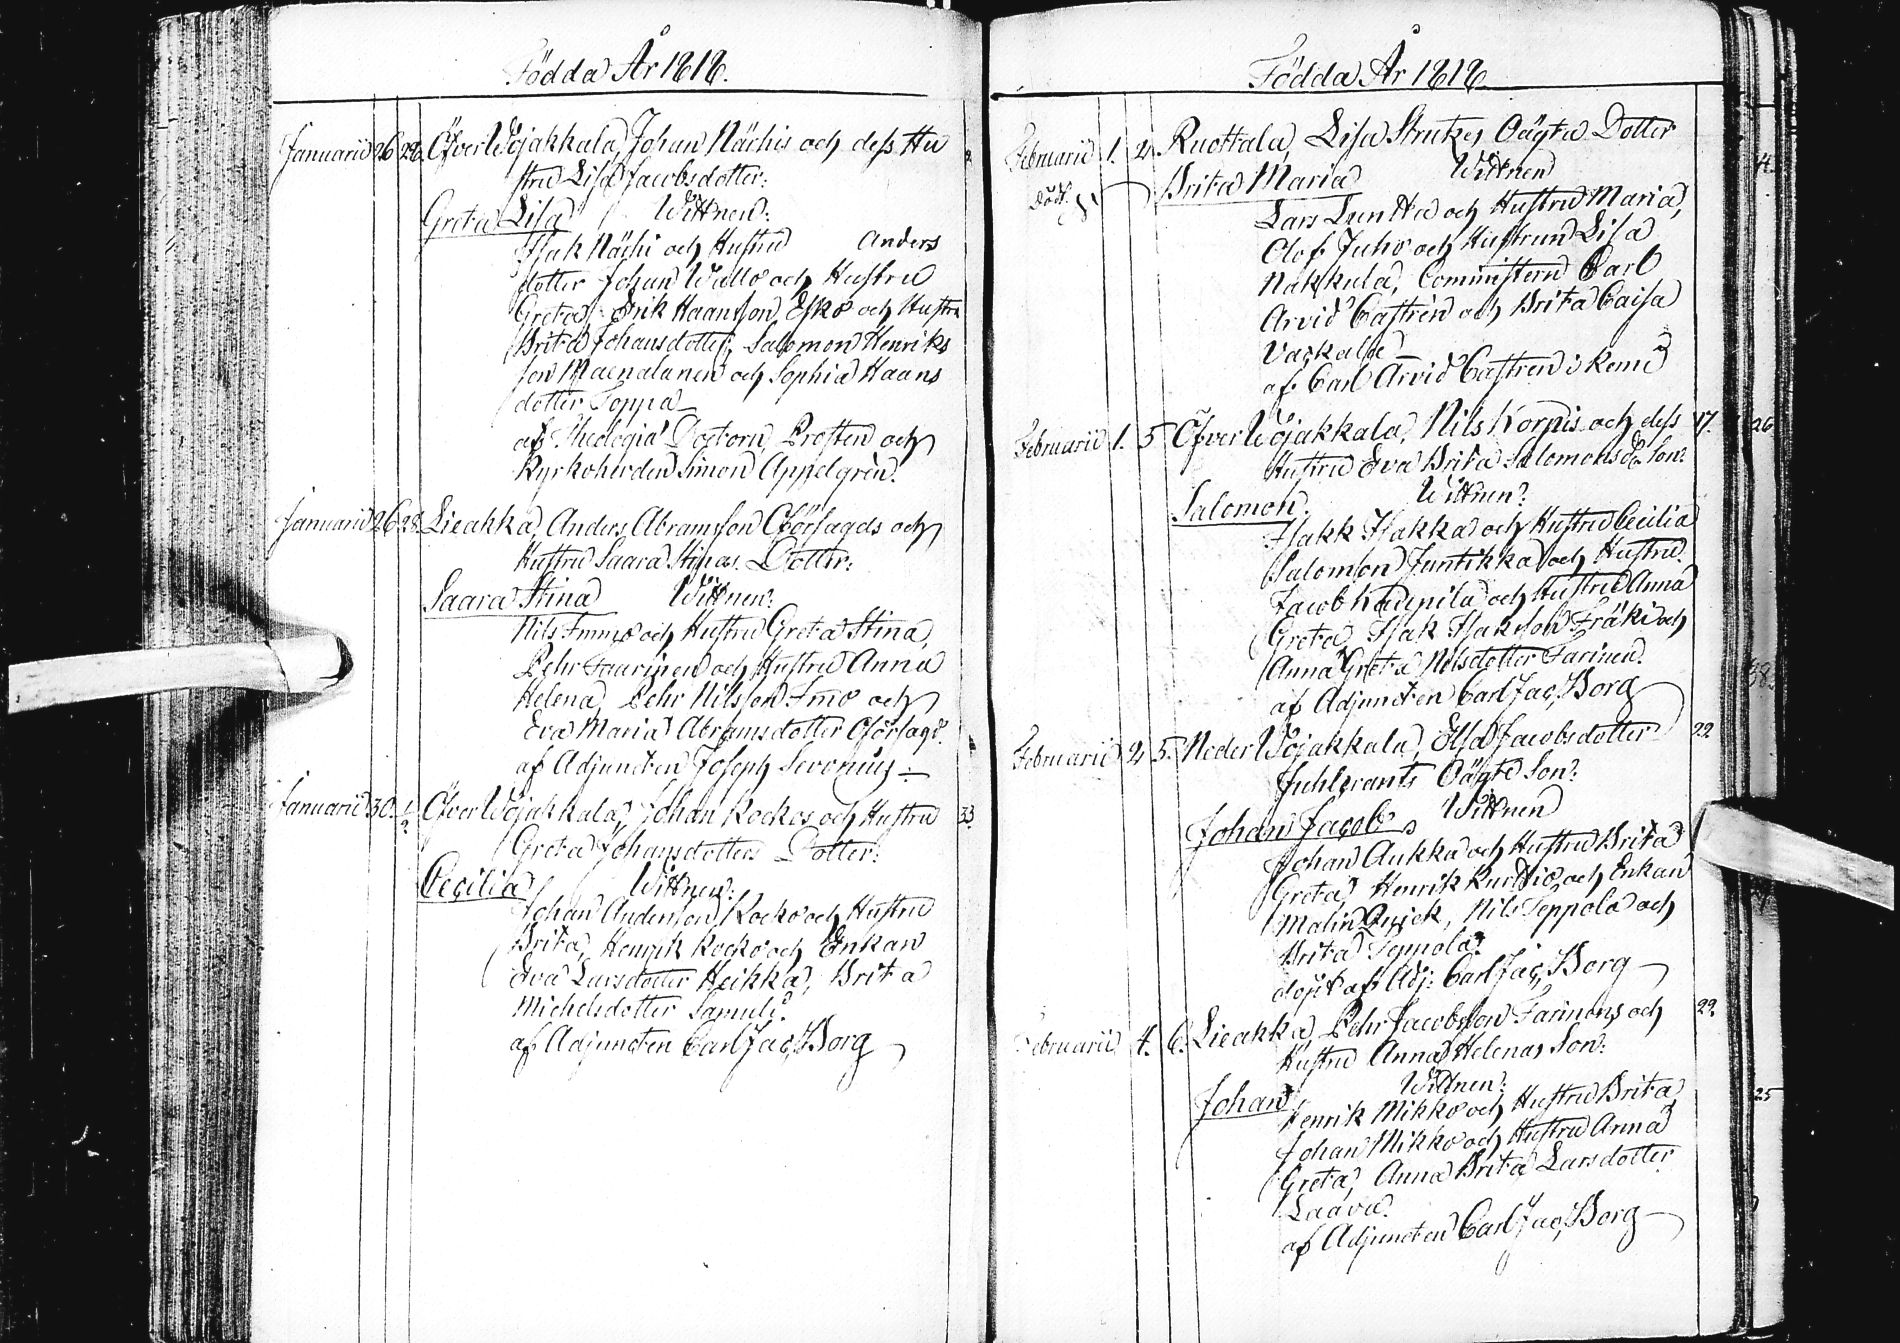 Födda År 1818.
Januarii 26 28. Öfver Wojakkala, Johan Nächis och dess Hu
stru Lisa Jacobsdotter:
Greta Lisa Wittnen:
Isak Nächi och Hustru Anders
dotter Johan Wallo och Hustru
Greta, Erik Haansson Esko och Hustru
Brita Johansdotter, Salomon Henriks
son Maenalanen och Sophia Haans
dotter Toppa
af Theologiæ Doctorn, Prosten och
Kyrkoherden Simon Appelgrén.
Januarii 26 28. Lieakka, Anders Abramsson Oförsagds och
Hustru Saara Stinas Dotter:
Saara Stina Wittnen:
Nils Immo och Hustru Greta Stina,
Pehr Taarinen och Hustru Anna
Helena, Pehr Nilsson Imo och
Eva Maria Abramsdotter Oförsagd.
af Adjuncten Joseph
Januarii 30. 1/2 Öfver Wojakkala, Johan Kockos och Hustru 33.
Greta Johansdotters Dotter:
Cecilia Wittnen:
Johan Andersson Kocko och Hustru
Brita, Henrik Kocko och Enkan
Eva Larsdotter Heikka, Brita
Michelsdotter Samuli.
af Adjuncten Carl Jac. Borg
Födda År 1818.
Februarii 1. 2 Ruottala, Lisa Oägta Dotter
död. Brita Maria Wittnen
Lars och Hustru Maria,
Olof Juho och Hustrun Lisa
Nakkula, Commistern Carl
Arvid Castrén och Brita Caisa
af Carl Arvid Castrén i Kemi
Februarii 1. 5 Öfver Wojakkala, Nils Korpis och dess 27.
Hustru Eva Brita Salomonsds Son:
Salomon. Wittnen:
Isakk Isakka och Hustru Cecilia
Salomon Juntikka och Hustru
Jacob Kaupila och Hustru Anna
Greta, Isak Isaksson Fräki och
Anna Greta Nilsdotter Tarinen.
af Adjuncten Carl Jac. Borg
Februarii 2 5. Neder Wojakkala, Elsa Jacobsdotter 22.
Oägte Son:
Johan Jacob Wittnen
Johan Aukka och Hustru Brita
Greta, Henrik och Enkan
Malin Qvick, Nils Teppola och
Brita Teppola.
döpt af Adj: Carl Jac. Borg
Februarii 4. 6. Lieakka, Pehr Jacobsson Tarinens och 22.
Hustru Anna Helenas Son:
Johan Wittnen:
Henrik Mikko och Hustru Brita,
Johan Mikko och Hustru Anna
Greta, Anna Brita Larsdotter
Laava.
af Adjuncten Carl Jac. Borg
26
38.
25